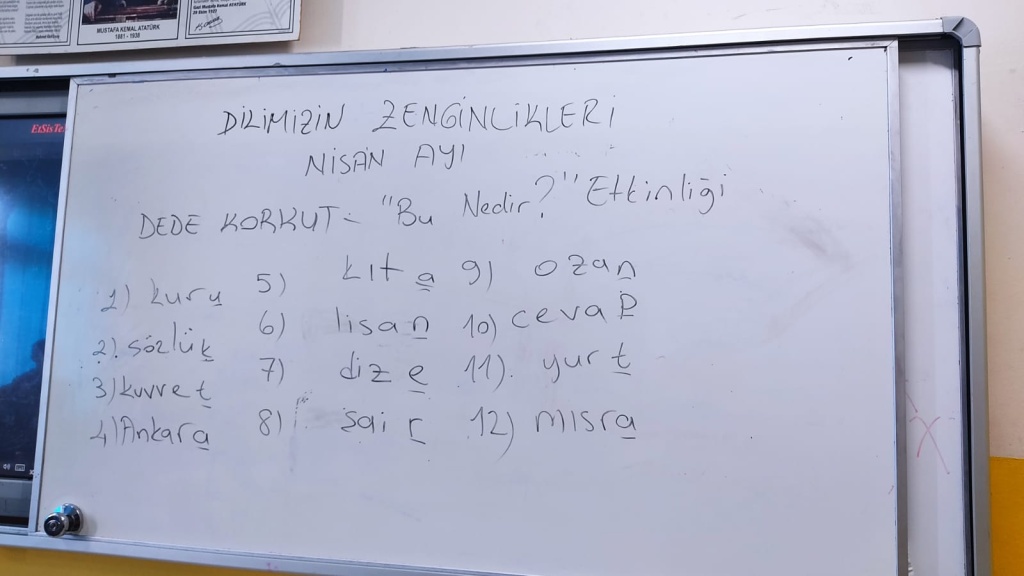 MUSTAFA KEMAL ATATÜRK
1881 - 1938
EtSisTe
DİLİMİZİN ZENGİNLİKLERİ
NİSAN AYI
DEDE KORKUT - "Bu Nedir?" Etkinliği
1) kuru 5) kıta 9) ozan
2) sözlük 6) lisan 10) cevap
3) kuvvet 7) dize 11). yurt
4) Ankara 8) şair 12) mısra